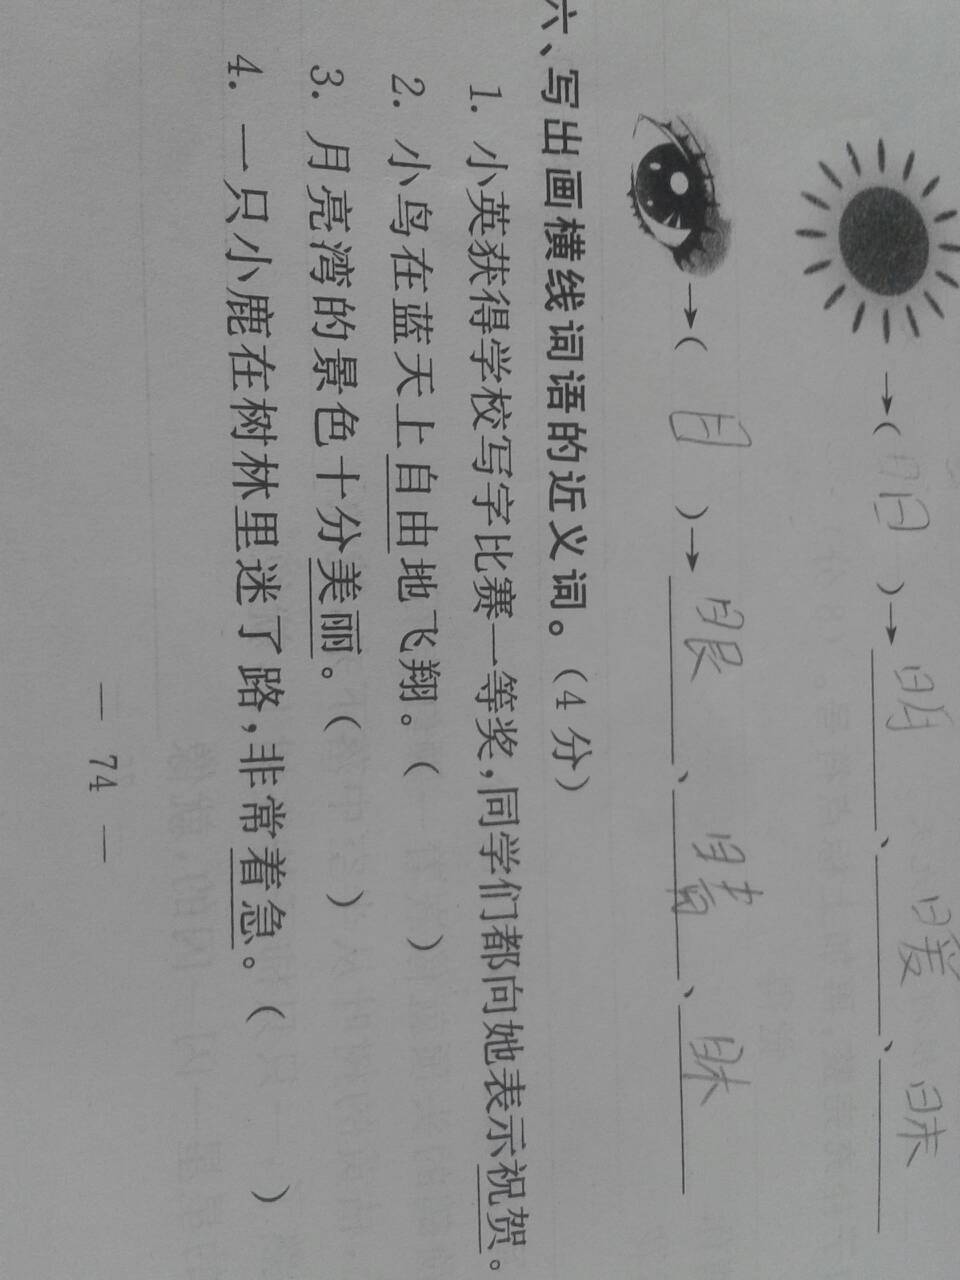 →(日)→明、暖、昧
→(目)→眼、睛、眛
六、写出画横线词语的近义词。(4分)
1. 小英获得学校写字比赛一等奖,同学们都向她表示祝贺。
2. 小鸟在蓝天上自由地飞翔。( )
3. 月亮湾的景色十分美丽。( )
4. 一只小鹿在树林里迷了路,非常着急。( )
— 74 —